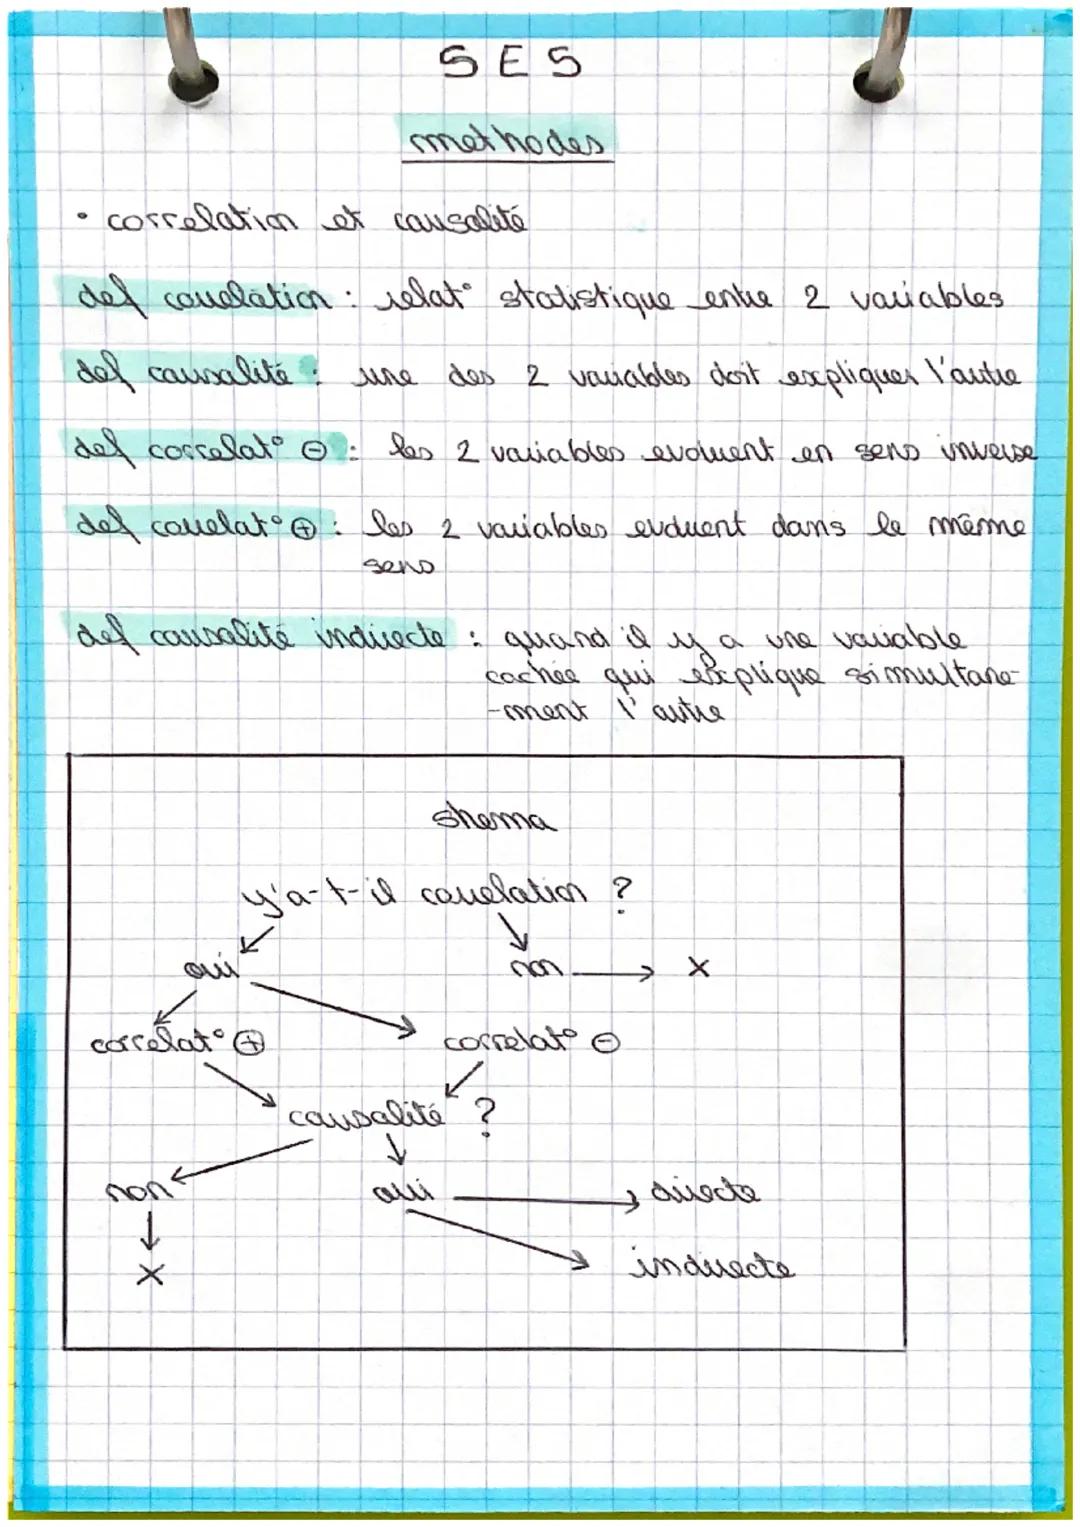 SES
methodes
• correlation et causalité
def correlation : relat° statistique entre 2 variables
def causalité : une des 2 variables doit expliquer l'autre
def correlat° ⊖ : les 2 variables evoluent en sens inverse
def correlat° ⊕ : les 2 variables evoluent dans le même
sens
def causalité indirecte : quand il y a une variable
cachée qui explique simultane-
-ment l'autre
shema
y'a-t-il correlation ?
oui non → X
correlat° ⊕ correlat° ⊖
causalité ?
non oui → directe
X indirecte